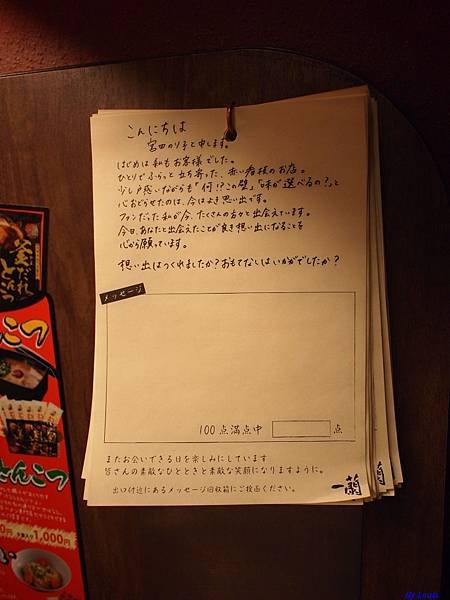 こんにちは
宮田のり子と申します。
はじめは私もお客様でした。
ひとりでふらっと立ち寄った、赤い看板のお店。
少し戸惑いながらも「何!?この壁」「味が選べるの?」と
心おどらせたのは、今はよき思い出です。
ファンだった私が今、たくさんの方々と出会えています。
今日、あなたと出会えたことが良き想い出になることを
心から願っています。
想い出はつくれましたか?おもてなしはいかがでしたか?
メッセージ
100点満点中
点
またお会いできる日を楽しみにしています
皆さんの素敵なひとときと素敵な笑顔になりますように。
出口付近にあるメッセージ回収箱にご投函ください。
一蘭
釜だれ
とんこつ
んこつ
とんこつ
1,000円